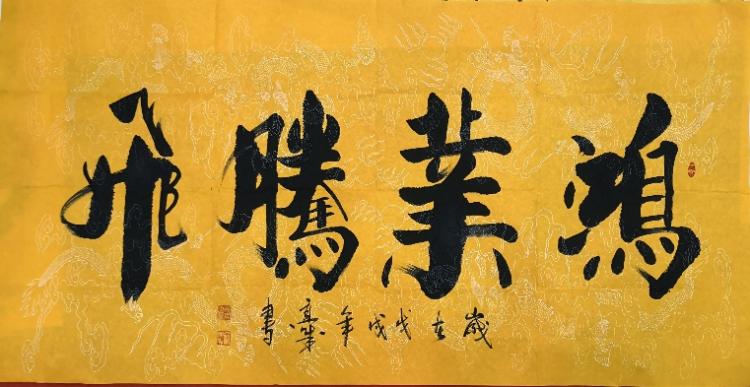 鴻業騰飛
歲在戊戌年
書